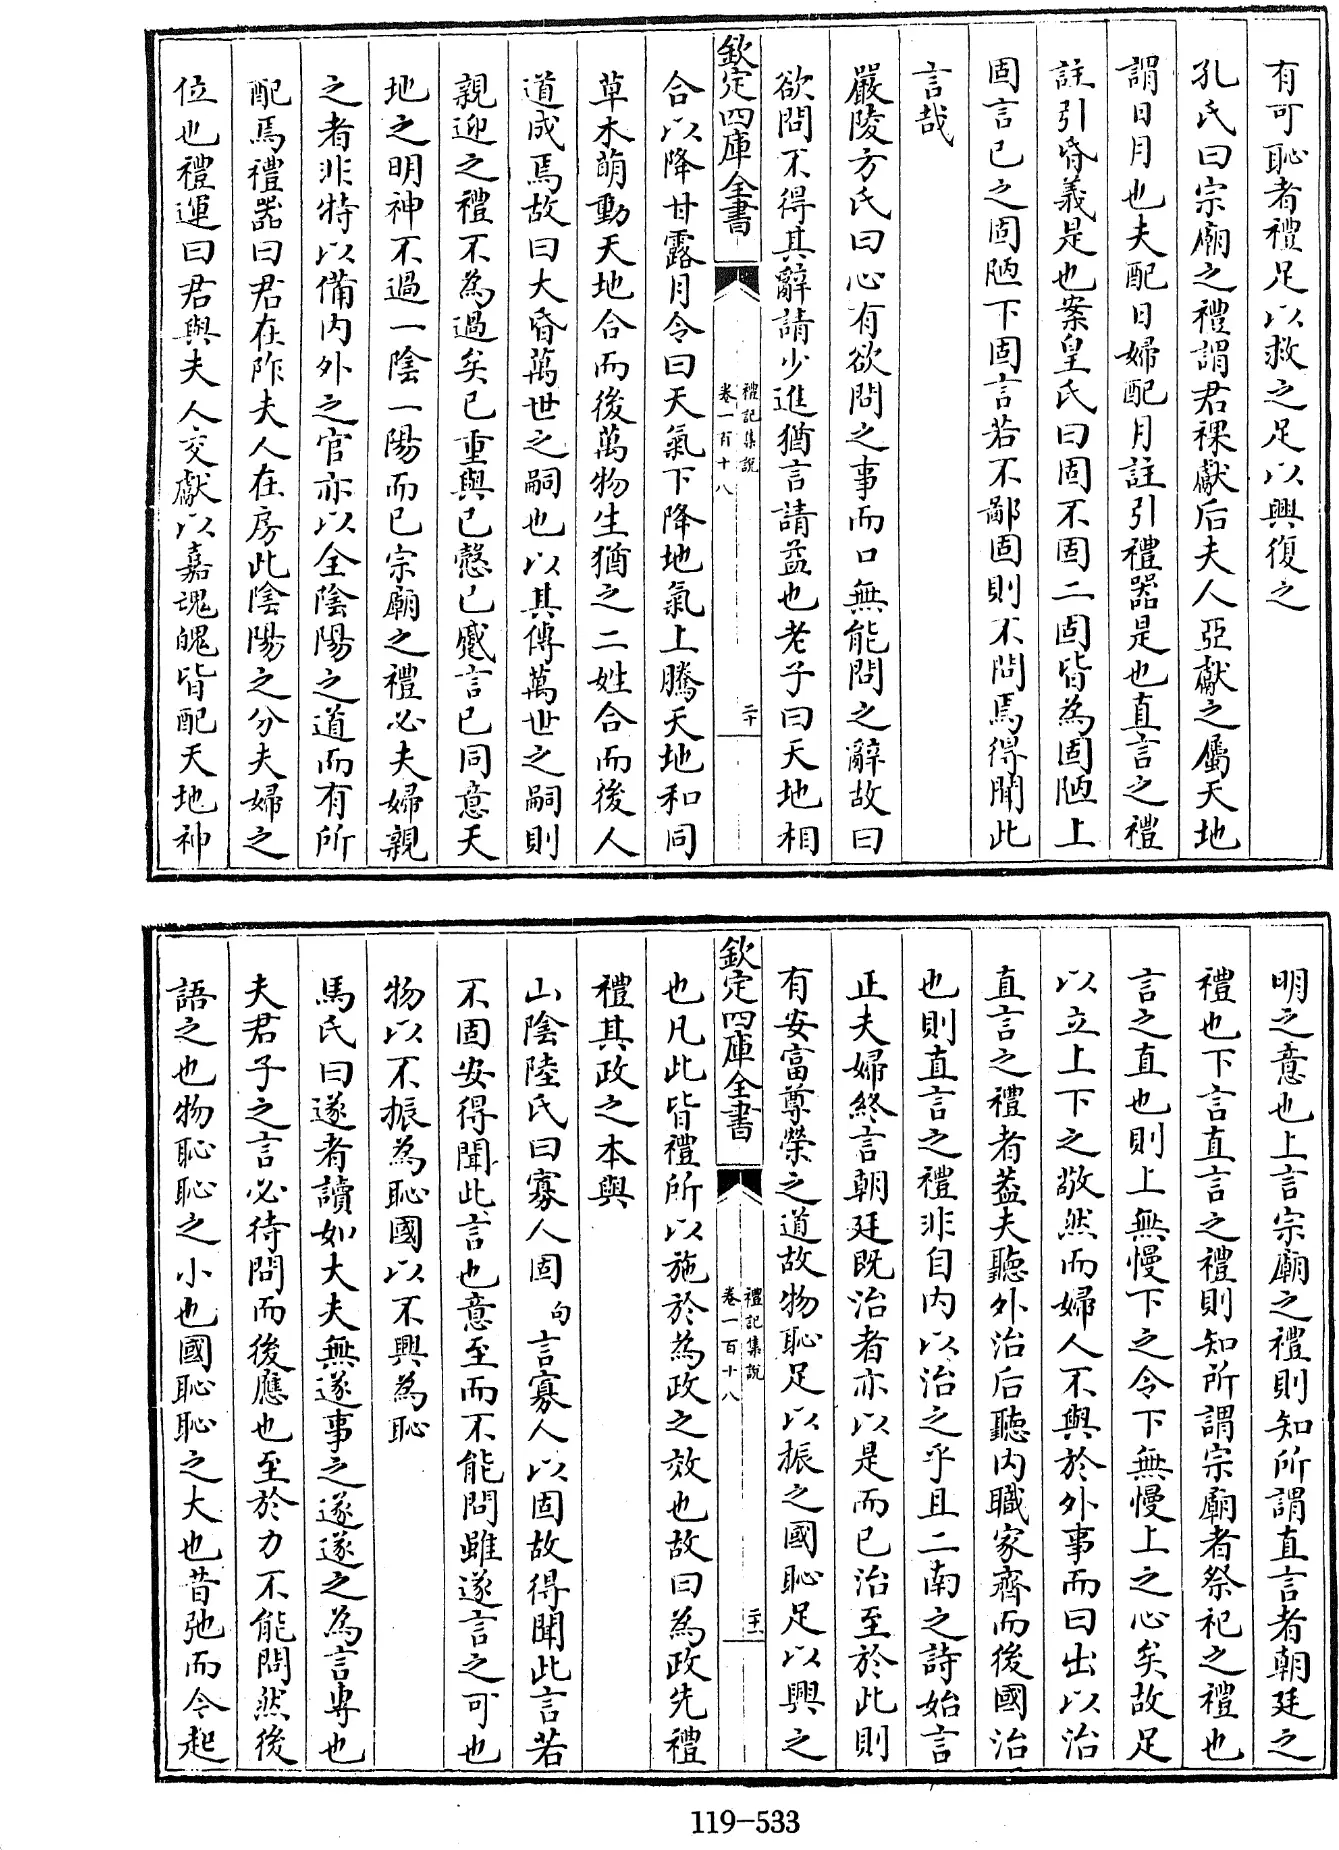 有可恥者禮足以救之足以興復之
孔氏曰宗廟之禮謂君祼獻后夫人亞獻之屬天地
謂日月也夫配日婦配月註引禮器是也直言之禮
註引昏義是也案皇氏曰固不固二固皆為固陋上
固言已之固陋下固言若不鄙固則不問焉得聞此
言哉
嚴陵方氏曰心有欲問之事而口無能問之辭故曰
欲問不得其辭請少進猶言請益也老子曰天地相
欽定四庫全書
禮記集說
卷一百十八
二十
合以降甘露月令曰天氣下降地氣上騰天地和同
草木萌動天地合而後萬物生猶之二姓合而後人
道成焉故曰大昏萬世之嗣也以其傳萬世之嗣則
親迎之禮不為過矣已重與已慤已蹙言已同意天
地之明神不過一陰一陽而已宗廟之禮必夫婦親
之者非特以備内外之官亦以全陰陽之道而有所
配焉禮器曰君在阼夫人在房此陰陽之分夫婦之
位也禮運曰君與夫人交獻以嘉魂魄皆配天地神
明之意也上言宗廟之禮則知所謂直言者朝廷之
禮也下言直言之禮則知所謂宗廟者祭祀之禮也
言之直也則上無慢下之令下無慢上之心矣故足
以立上下之敬然而婦人不與於外事而曰出以治
直言之禮者蓋夫聽外治后聽内職家齊而後國治
也則直言之禮非自内以治之乎且二南之詩始言
正夫婦終言朝廷既治者亦以是而已治至於此則
有安富尊榮之道故物恥足以振之國恥足以興之
欽定四庫全書
禮記集說
卷一百十八
二十一
也凡此皆禮所以施於為政之效也故曰為政先禮
禮其政之本與
山陰陸氏曰寡人固句言寡人以固故得聞此言若
不固安得聞此言也意至而不能問雖遂言之可也
物以不振為恥國以不興為恥
馬氏曰遂者讀如大夫無遂事之遂遂之為言專也
夫君子之言必待問而後應也至於力不能問然後
語之也物恥恥之小也國恥恥之大也昔弛而今起
119-533